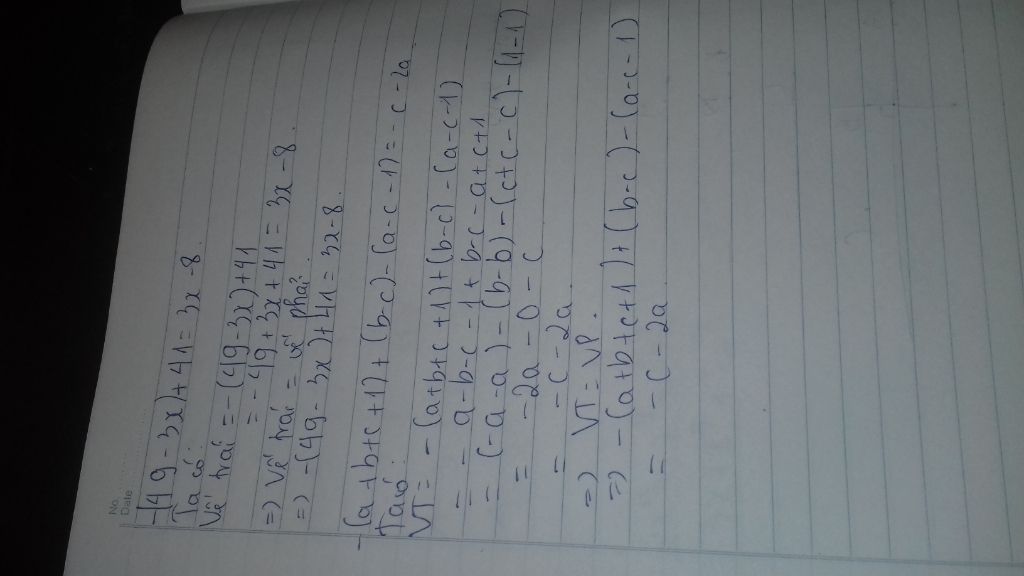 No.
Date
-(49 - 3x) + 41 = 3x - 8.
Ta có:
Vế trái = -(49 - 3x) + 41
= - 49 + 3x + 41 = 3x - 8.
=) Vế trái = vế phải.
=) -(49 - 3x) + 41 = 3x - 8.
-(a+b+c+1)+(b-c)-(a-c-1) = -c-2a
Ta có:
VT = -(a+b+c+1)+(b-c)-(a-c-1)
= - a-b-c-1+b-c-a+c+1
= (-a-a)-(b-b)-(c+c-c)-(1-1)
= -2a-0-c
= -c-2a.
=) VT = VP.
=) -(a+b+c+1)+(b-c)-(a-c-1)
= -c-2a.